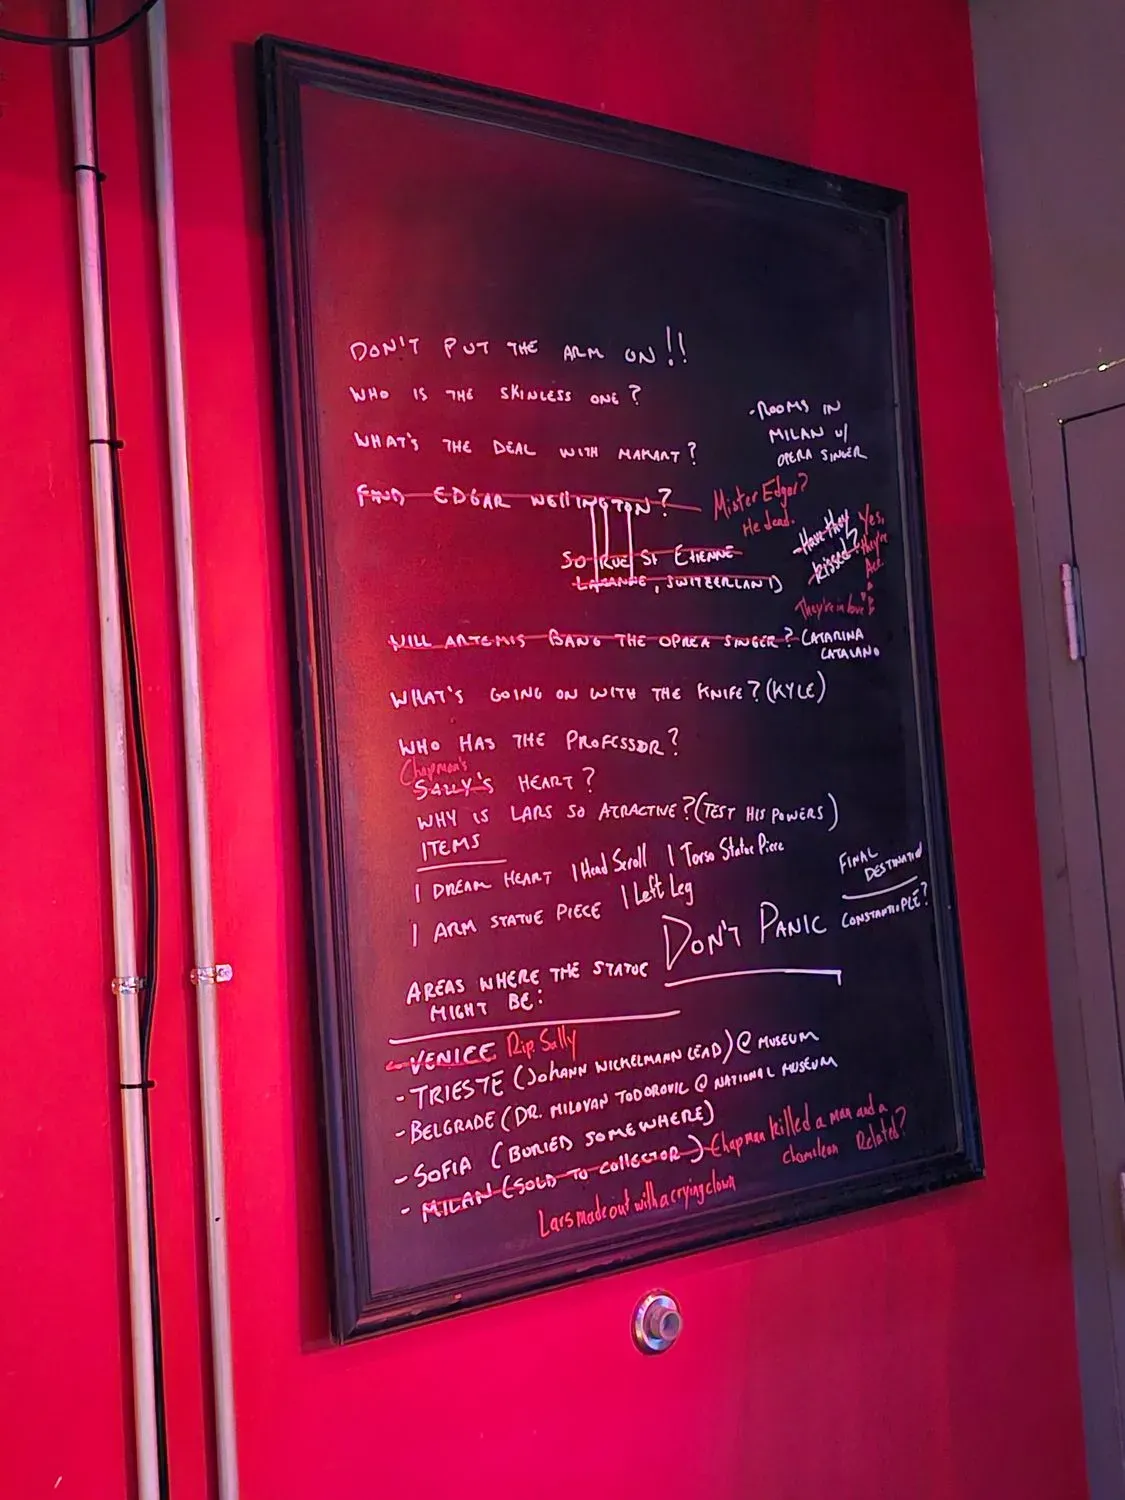 DON'T PUT THE ARM ON!!
WHO IS THE SKINLESS ONE?
-ROOMS IN
MILAN W/
OPERA SINGER
WHAT'S THE DEAL WITH MAKART?
FIND EDGAR WELLINGTON?
Mister Edgar?
He dead.
-Have they
kissed?
Yes,
they're
Ace.
They're in love
50 RUE St ETIENNE
LASANNE, SWITZERLAND
WILL ARTEMIS BANG THE OPREA SINGER?
CATARINA
CATALANO
WHAT'S GOING ON WITH THE KNIFE? (KYLE)
WHO HAS THE PROFESSOR?
Chapman's
SALLY'S HEART?
WHY IS LARS SO ATRACTIVE? (TEST HIS POWERS)
ITEMS
1 DREAM HEART 1 Head Scroll 1 Torso Statue Piece
1 ARM STATUE PIECE 1 Left Leg
FINAL
DESTINATION
CONSTANTIOPLE?
DON'T PANIC
AREAS WHERE THE STATUE
MIGHT BE:
-VENICE Rip. Sally
-TRIESTE (JOHANN WICKELMANN LEAD) @ MUSEUM
-BELGRADE (DR. MILOVAN TODOROVIC @ NATIONAL MUSEUM
-SOFIA (BURIED SOMEWHERE)
-MILAN (SOLD TO COLLECTOR) -Chapman killed a man and a
chamileon Related?
Lars made out with a crying clown